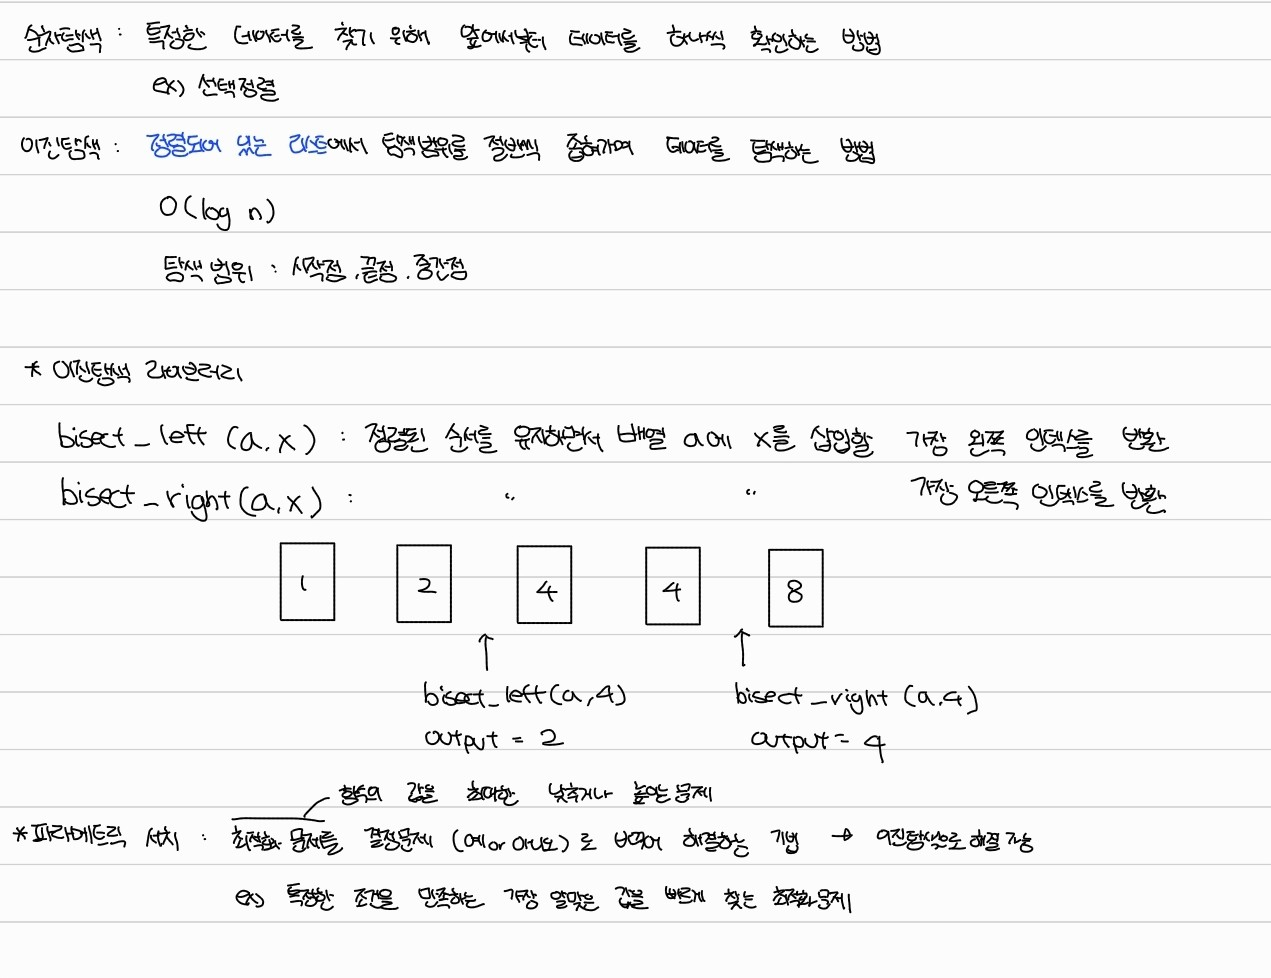 순차탐색 : 특정한 데이터를 찾기 위해 앞에서부터 데이터를 하나씩 확인하는 방법
ex) 선택정렬
이진탐색 : 정렬되어 있는 리스트에서 탐색범위를 절반씩 좁혀가며 데이터를 탐색하는 방법
O(log n)
탐색 범위 : 시작점, 끝점, 중간점
* 이진탐색 라이브러리
bisect_left (a, x) : 정렬된 순서를 유지하면서 배열 a에 x를 삽입할 가장 왼쪽 인덱스를 반환
bisect_right(a, x) : " " 가장 오른쪽 인덱스를 반환
1 2 4 4 8
bisect_left(a, 4) bisect_right (a, 4)
output = 2 output = 4
함수의 값을 최대한 낮추거나 높이는 문제
* 파라메트릭 서치 : 최적화 문제를 결정문제 (예 or 아니오) 로 바꾸어 해결하는 기법 → 이진탐색으로 해결 가능
ex) 특정한 조건을 만족하는 가장 알맞은 값을 빠르게 찾는 최적화 문제